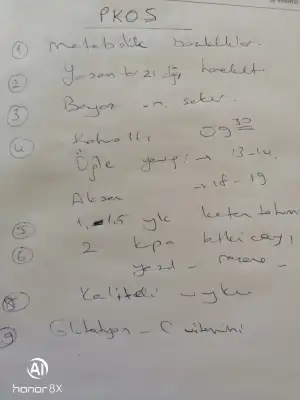 PKOS
① metabolik bozukluklar.
② Yaşam tarzı değ, hareket
③ Beyaz un, şeker.
④ Kahvaltı 09 30
Öğle yemeği → 13-14.
Akşam → 18-19
⑤ 1,-1,5 yk keten tohumu
⑥ 2 kupa bitki çayı,
yeşil - rezene -
⑧ Kaliteli uyku
9 Glutatyon - C vitamini
AI
honor 8X